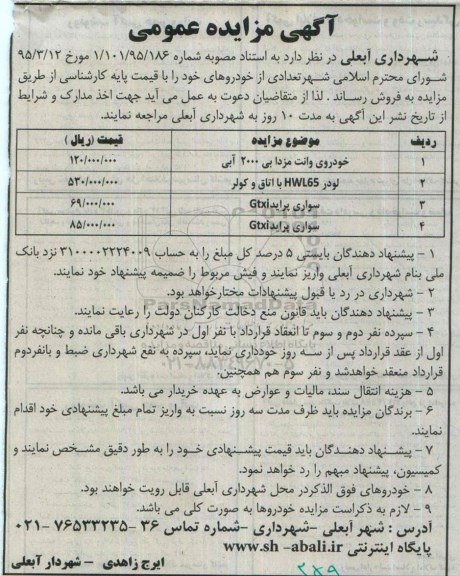 آگهی مزایده عمومی
شهرداری آبعلی در نظر دارد به استناد مصوبه شماره ۱/۱۰۱/۹۵/۱۸۶ مورخ ۹۵/۳/۱۲
شورای محترم اسلامی شهرتعدادی از خودروهای خود را با قیمت پایه کارشناسی از طریق
مزایده به فروش رساند . لذا از متقاضیان دعوت به عمل می آید جهت اخذ مدارک و شرایط
از تاریخ نشر این آگهی به مدت ۱۰ روز به شهرداری آبعلی مراجعه نمایند.
ردیف موضوع مزایده قیمت (ریال )
۱ خودروی وانت مزدا بی ۲۰۰۰ آبی ۱۲۰/۰۰۰/۰۰۰
۲ لودر HWL65 با اتاق و کولر ۵۳۰/۰۰۰/۰۰۰
۳ سواری پرایدGtxi ۶۹/۰۰۰/۰۰۰
۴ سواری پرایدGtxi ۸۵/۰۰۰/۰۰۰
۱ - پیشنهاد دهندگان بایستی ۵ درصد کل مبلغ را به حساب ۳۱۰۰۰۰۲۲۲۴۰۰۹ نزد بانک
ملی بنام شهرداری آبعلی واریز نمایند و فیش مربوط را ضمیمه پیشنهاد خود نمایند.
۲ - شهرداری در رد یا قبول پیشنهادات مختارخواهد بود.
۳ - پیشنهاد دهندگان باید قانون منع دخالت کارکنان دولت را رعایت نمایند.
۴ - سپرده نفر دوم و سوم تا انعقاد قرارداد با نفر اول در شهرداری باقی مانده و چنانچه نفر
اول از عقد قرارداد پس از سه روز خودداری نماید، سپرده به نفع شهرداری ضبط و بانفردوم
قرارداد منعقد خواهدشد و نفر سوم هم همچنین.
۵ - هزینه انتقال سند، مالیات و عوارض به عهده خریدار می باشد.
۶ - برندگان مزایده باید ظرف مدت سه روز نسبت به واریز تمام مبلغ پیشنهادی خود اقدام
نمایند.
۷ - پیشنهاد دهندگان باید قیمت پیشنهادی خود را به طور دقیق مشخص نمایند و
کمیسیون، پیشنهاد مبهم را رد خواهد نمود.
۸ - خودروهای فوق الذکردر محل شهرداری آبعلی قابل رویت خواهند بود.
۹ - لازم به ذکراست مزایده خودروها به صورت کلی می باشد.
آدرس : شهر آبعلی -شهرداری -شماره تماس ۳۶ -۷۶۵۳۳۲۳۵-۰۲۱
پایگاه اینترنتی www.sh -abali.ir
ایرج زاهدی - شهردار آبعلی